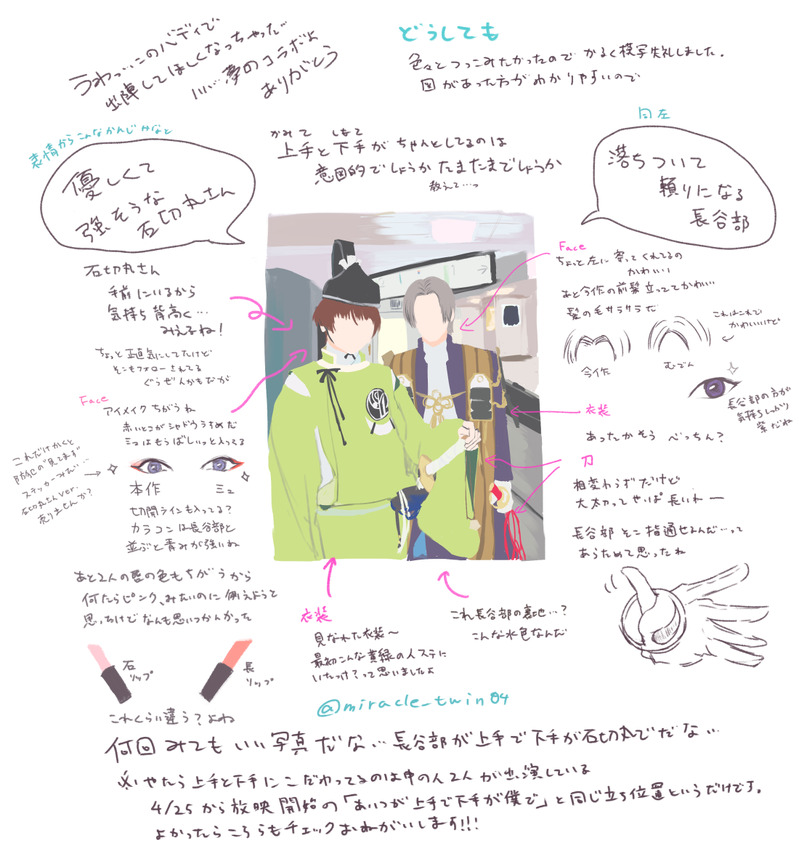 うわっ…このバディで
出陣してほしくなっちゃった
い…夢のコラボよ
ありがとう
どうしても
色々とつっこみたかったので かるく模写失礼しました。
図があった方がわかりやすいので
表情からこんなかんじゃなと
優しくて
強そうな
石切丸さん
かみて しもて
上手と下手がちゃんとしてるのは
意図的でしょうかたまたまでしょうか
教えて…っ
同左
落ちついて
頼りになる
長谷部
石切丸さん
手前にいるから
気持ち背高く…
みえるね!
Face
ちょっと左に寄ってくれてるの
かわいい
あと今作の前髪立っててかわいい
髪の毛サラサラだ
これはこれで
かわいいけど
今作
むでん
長谷部の方が
気持ちしっかり
紫だね
Face
アイメイクちがうね
赤いとこがシャドウうすめだ
ミュはもうばしっと入ってる
本作
ミュ
切開ラインも入ってる?
カラコンは長谷部と
並ぶと青みが強いね
衣装
あったかそう べっちん?
刀
相変わらずだけど
大太刀ってやっぱ長いわー
長谷部 そこ指通せるんだ…って
あらためて思ったね
あと2人の唇の色もちがうから
何たらピンク、みたいのに例えようと
思ったけどなんも思いつかんかった
石
リップ
長
リップ
これくらい違う?よね
衣装
見なれた衣装〜
最初こんな黄緑の人ステに
いたっけ?って思いましたよ
これ長谷部の裏地…?
こんな水色なんだ
@miracle_twin04
何回みてもいい写真だな… 長谷部が上手で下手が石切丸でだな…
※やたら上手と下手にこだわってるのは中の人2人が出演している
4/25から放映開始の「あいつが上手で下手が僕で」と同じ立ち位置というだけです。
よかったらこちらもチェックおねがいします!!!